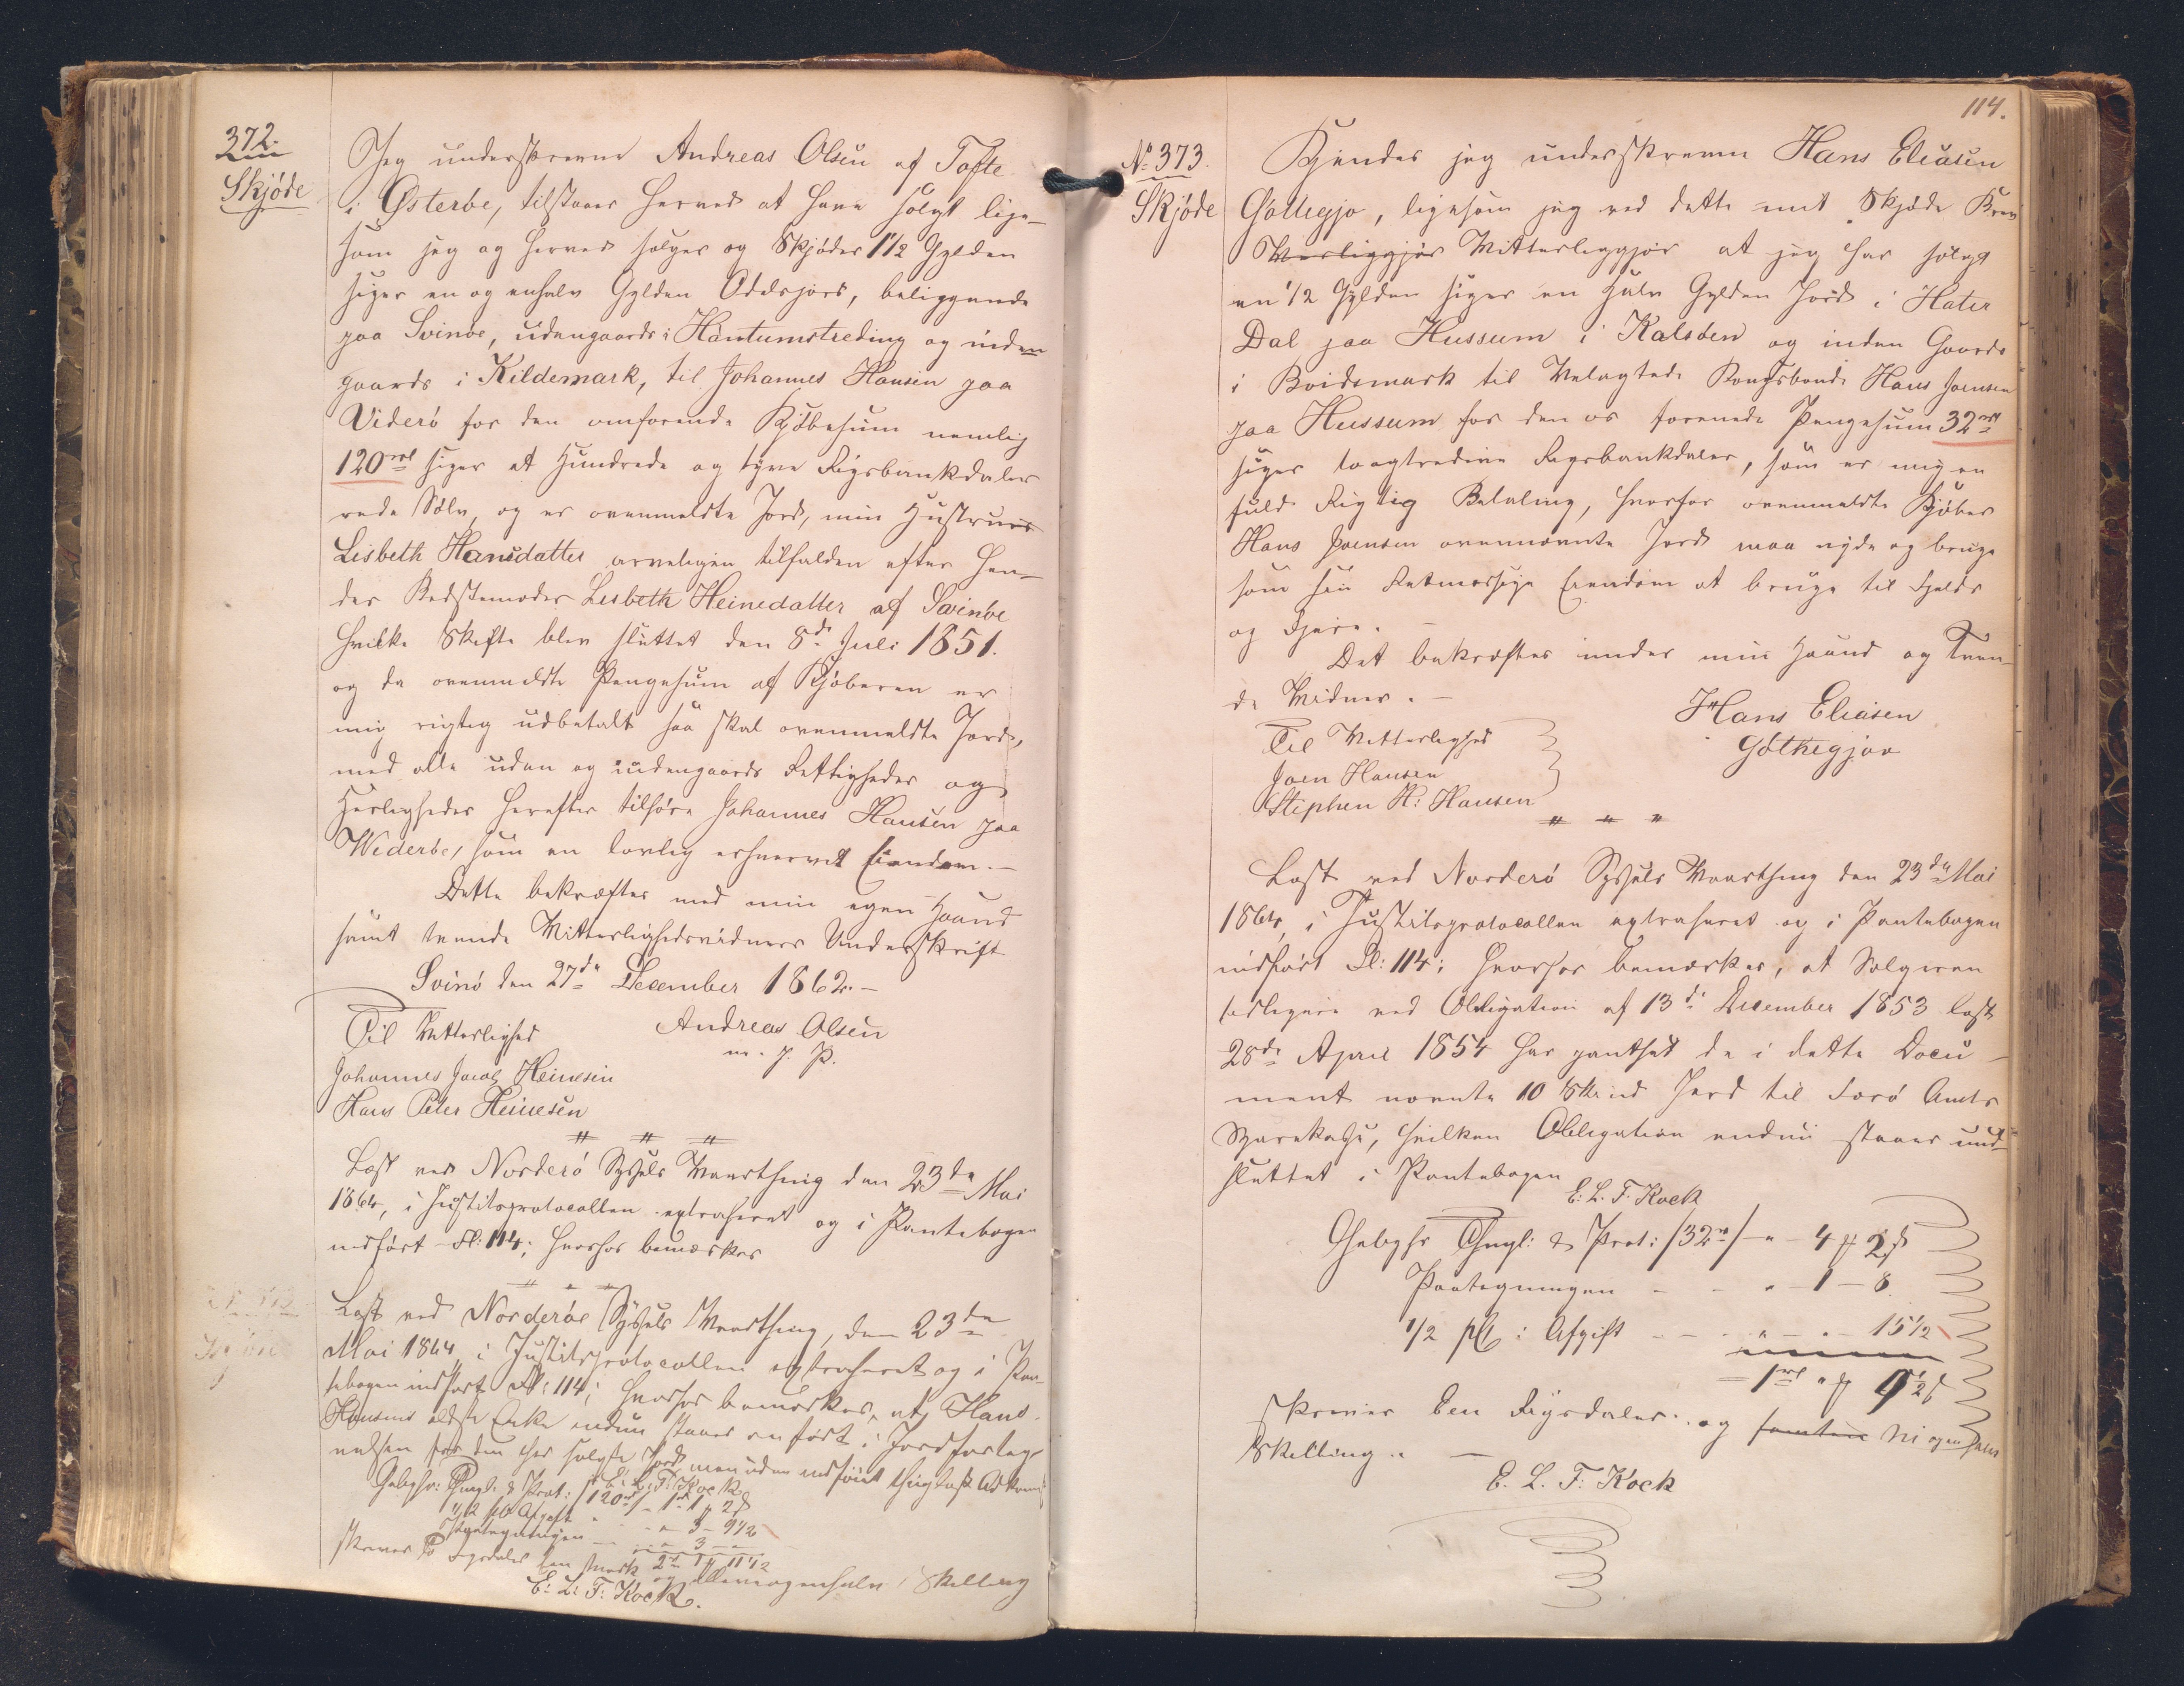 372.
Skjøde
Jeg underskrevne Andreas Olsen af Tofte
i Østerbø, tilstaaer herved at have solgt lige-
som jeg og herved sælger og Skjøder 1 1/2 Gylden
siger en og enhalv Gylden Odelsjord, beliggende
paa Svinøe, udengaards i Hantumstreding og inden
gaards i Kildemark, til Johannes Hansen paa
Viderø for den omforende Kjøbesum nemlig
120 rd siger et Hundrede og tyve Rigsbankdaler
rede Sølv, og er ovenmeldte Jord, min Hustrues
Lisbeth Hansdatter arveligen tilfalden efter hen-
des Bedstemoder Lisbeth Heinedatter af Svinøe
hvilke Skifte blev sluttet den 8de Juli 1851.
og da ovenmeldte Pengesum af Kjøberen er
mig rigtig udbetalt saa skal ovenmeldte Jord,
med alle uden og indengaards Rettigheder og
Herligheder herefter tilhøre Johannes Hansen paa
Widerøe, som en lovlig erhvervet Eiendom.-
Dette bekræftes med min egen Haand
samt tvende Vitterlighedsvidners Underskrift
Svinø den 27de December 1862.-
Til Vitterlighed
Andreas Olsen
m. f. P.
Johannes Jacob Heinesen
Hans Peter Heinesen
Læst ved Norderø Syssels Vaarthing den 23de Mai
1864, i Justitsprotocollen extraheret og i Pantebogen
indført Fl: 114; hvorhos bemærkes
Læst ved Norderøe Syssels Vaarthing, den 23de
Mai 1864, i Justitsprotocollen extraheret og i Pan-
tebogen indført Fl: 114; hvorhos bemærkes, at Hans
Hansens ældste Enke endnu staaer anført i Jordforteg-
nelsen for den her solgte Jord men uden indført thinglæst Adkomst
E. L. F. Kock
Gebyhr: Thingl. & Prot: /120 rd/ - 1 rd 1 # 2 ß
1/2 pCt Afgift - - " 3 - 9 1/2
Paategningen - - " 3 - "
2 rd 1 # 11 1/2
skriver To Rigsdaler Een Mark og Elleveogenhalv Skilling
E. L. F. Kock.
114.
No 373.
Skjøde
Kjendes jeg underskrevne Hans Eliasen
Gøttegjo, ligesom jeg ved dette mit Skjøde Brev
Vitterleggjør at jeg har solgt
en 1/2 Gylden siger en Halv Gylden Jord i Hater
Dal paa Hussum i Kalsøen og inden Gaards
i Boidsmark til Velagtede Kongsbonde Hans Joensen
paa Hussum for den os forenede Pengesum 32 rd
siger toogtredive Rigsbankdaler, som er mig en
fuld Rigtig Betaling, hvorfor ovenmeldte Kjøber
Hans Joensen ovennævnte Jord maa nyde og bruge
som sin Retmæssige Eiendom at bruge til Fjelds
og Fjære.
Det bekræftes under min Haand og Tven-
de Vidner.-
Hans Eliasen
Gøthegjov
Til Vitterlighed
Joen Hansen
Stephen H: Hansen
Læst ved Norderø Syssels Vaarthing den 23de Mai
1864, i Justitsprotocollen extraheret og i Pantebogen
indført Fl: 114; hvorhos bemærkes, at Sælgeren
tidligere ved Obligation af 13de December 1853 læst
28de April 1854 har panthsat de i dette Docu-
ment nævnte 10 Skind Jord til Færø Amts
Sparekasse, hvilken Obligation endnu staaer uud-
slettet i Pantebogen
E. L. F. Kock
Gebyhr Thingl: & Prot: /32 rd/ - " - 4 # 2 ß
Paategningen - - " - 1 - 8
1/2 pCt: Afgift - - " - " - 15 1/2
= 1 rd " # 9 1/2 ß
skriver Een Rigsdaler og femten ni ogenhalv
Skilling. -
E. L. F. Kock